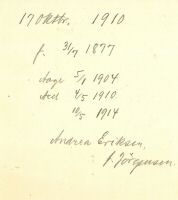 17 Oktbr. 1910
f. 3/7 1877
Aage 5/1 1904
Axel 4/5 1910
10/5 1914
Andrea Eriksen,
f. Jörgensen.